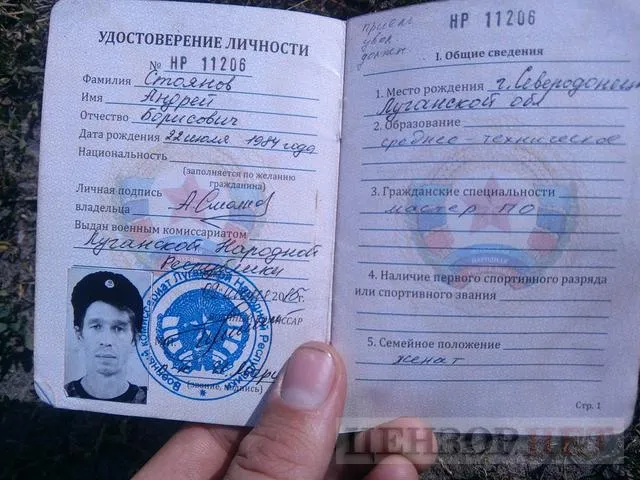 УДОСТОВЕРЕНИЕ ЛИЧНОСТИ
№ НР 11206
Фамилия Стоянов
Имя Андрей
Отчество Борисович
Дата рождения 22 июля 1984 года
Национальность
(заполняется по желанию
гражданина)
Личная подпись
владельца
Выдан военным комиссариатом
Луганской Народной
Республики
2015г.
М.П.
(звание, подпись)
Военный комиссариат Луганской Народной Республики
НР 11206
I. Общие сведения
1. Место рождения г. Северодонецк
Луганской обл
2. Образование
средне техническое
3. Гражданские специальности
мастер ПО
4. Наличие первого спортивного разряда
или спортивного звания
5. Семейное положение
женат
Стр. 1
ЦЕНЗОР.НЕТ